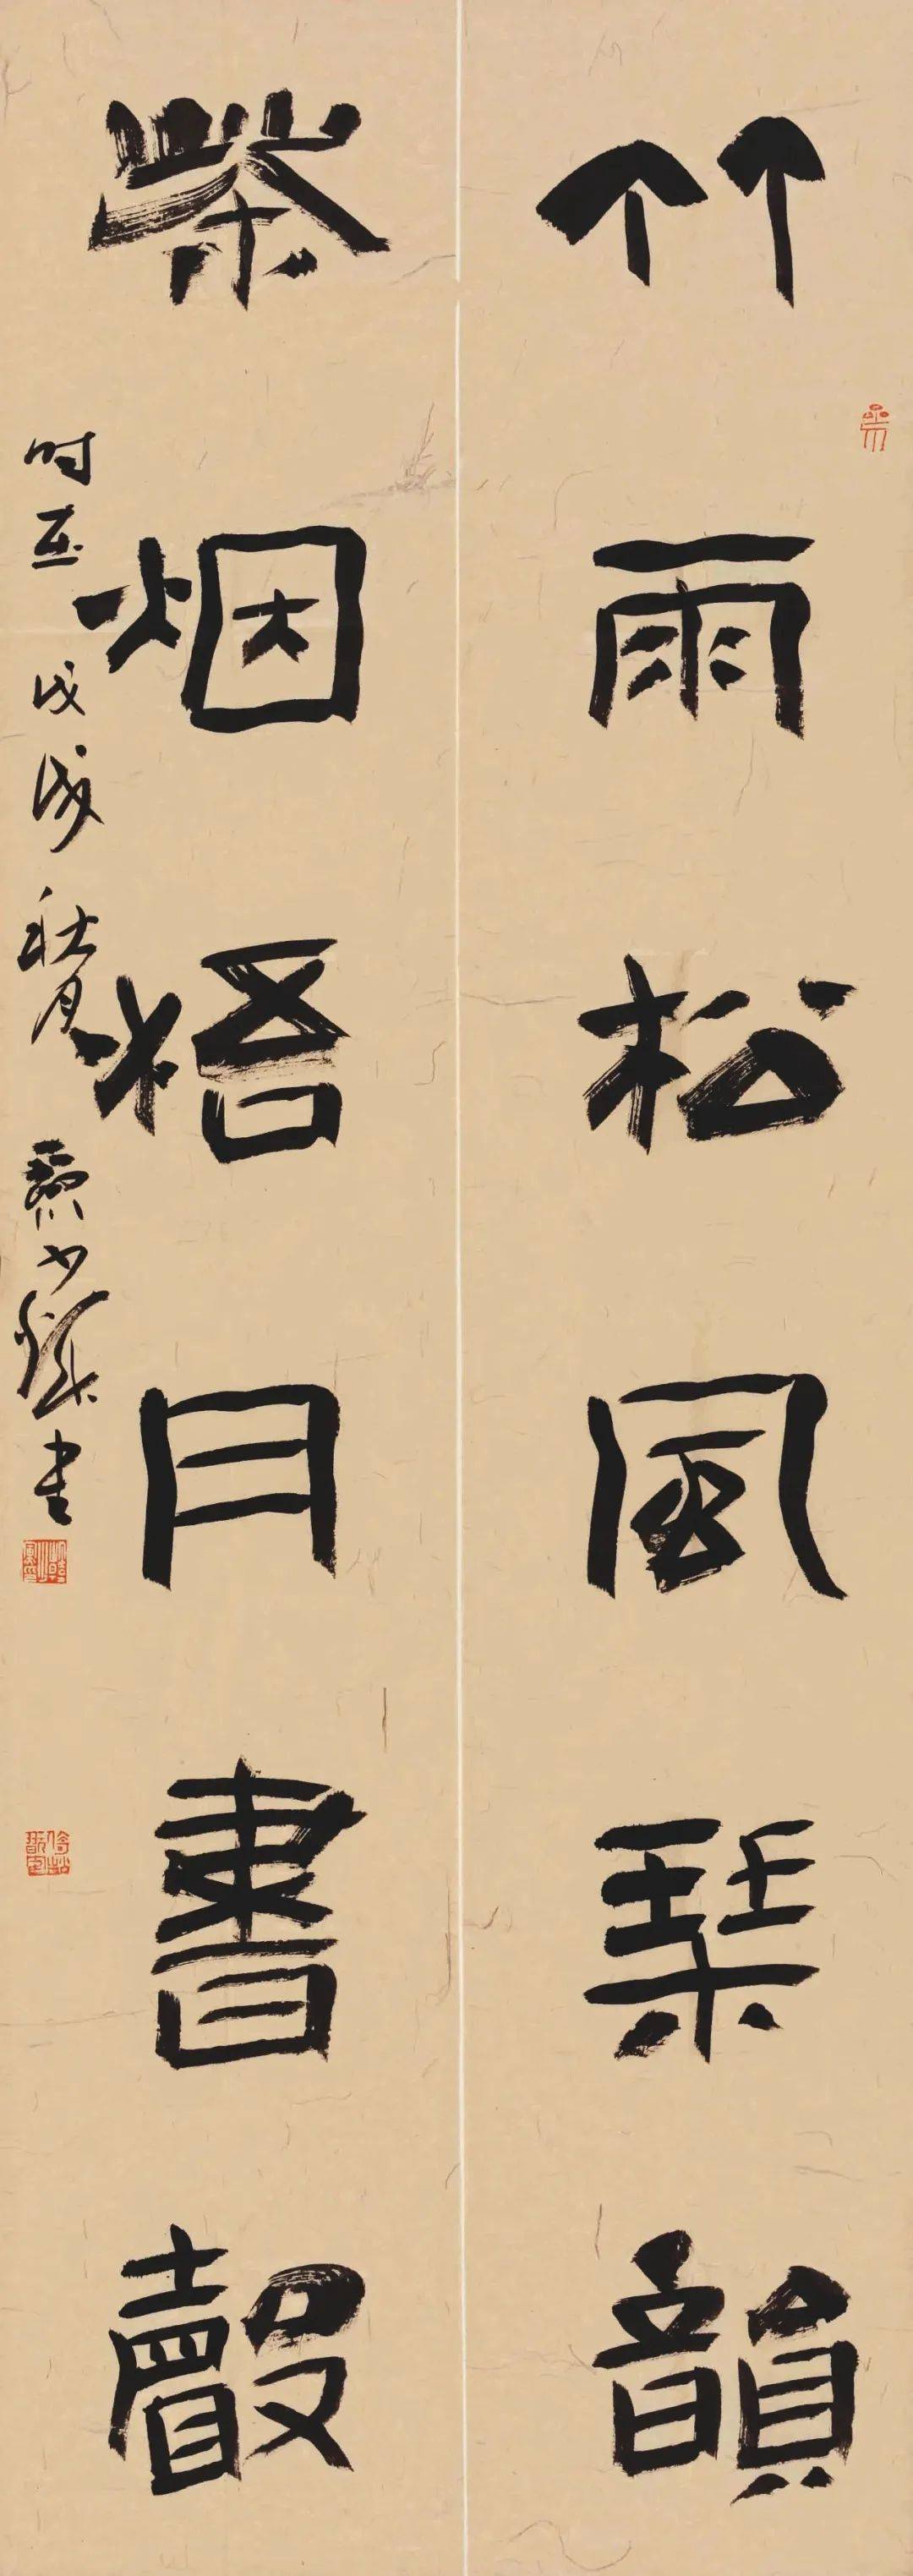 竹雨松風琴韻
茶烟梧月書聲
时在戊戌秋月书